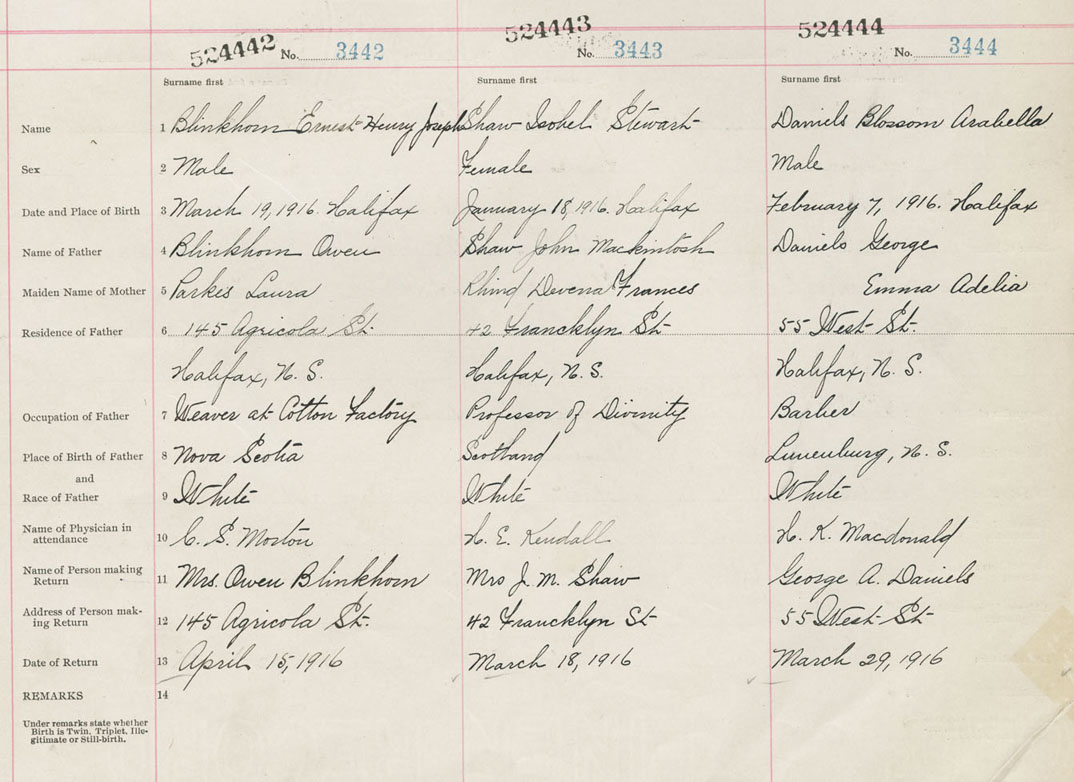 524442 No. 3442 524443 No. 3443 524444 No. 3444
Surname first Surname first Surname first
Name 1 Blinkhorn Ernest Henry Joseph Shaw Isobel Stewart Daniels Blossom Arabella
Sex 2 Male Female Male
Date and Place of Birth 3 March 19, 1916. Halifax January 18, 1916. Halifax February 7, 1916. Halifax
Name of Father 4 Blinkhorn Owen Shaw John Mackintosh Daniels George
Maiden Name of Mother 5 Parkes Laura Rhind Devena Frances Emma Adelia
Residence of Father 6 145 Agricola St. 42 Francklyn St 55 West St.
Halifax, N. S. Halifax, N. S. Halifax, N. S.
Occupation of Father 7 Weaver at Cotton Factory Professor of Divinity Barber
Place of Birth of Father 8 Nova Scotia Scotland Lunenburg, N. S.
and
Race of Father 9 White White White
Name of Physician in
attendance 10 C. S. Morton H. E. Kendall H. K. Macdonald
Name of Person making
Return 11 Mrs. Owen Blinkhorn Mrs J. M. Shaw George A. Daniels
Address of Person mak-
ing Return 12 145 Agricola St. 42 Francklyn St 55 West St
Date of Return 13 April 15, 1916 March 18, 1916 March 29, 1916
REMARKS 14
Under remarks state whether
Birth is Twin, Triplet, Ille-
gitimate or Still-birth.